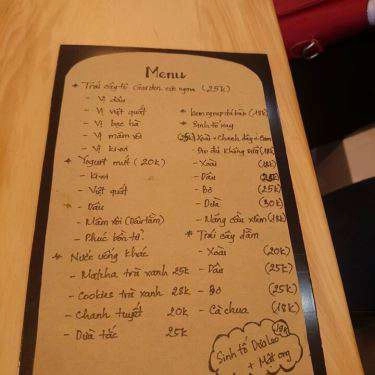 Menu
* Trái cây tô (25k)
- Vị dâu
- Vị việt quất
- Vị bạc hà
- Vị mâm xôi
- Vị kiwi
* Yogurt mứt (20k)
- kiwi
- Việt quất
- Dâu
- Mâm xôi (Dâu tằm)
- Phúc bồn tử
* Nước uống khác
- Matcha trà xanh 25k
- Cookies trà xanh 28k
- Chanh tuyết 20k
- Dừa tắc 25k
(18k)
* Sinh tố xay
(25k) Xoài + Chanh dây +
- Xoài (18k)
- Dâu
- Bơ (25k)
- Dừa (30k)
- Mãng cầu xiêm (18k)
* Trái cây dầm
- Xoài (20k)
- Dâu (25k)
- Bơ (25k)
- Cà chua (18k)
Sinh tố Dưa Leo
+ Mật ong